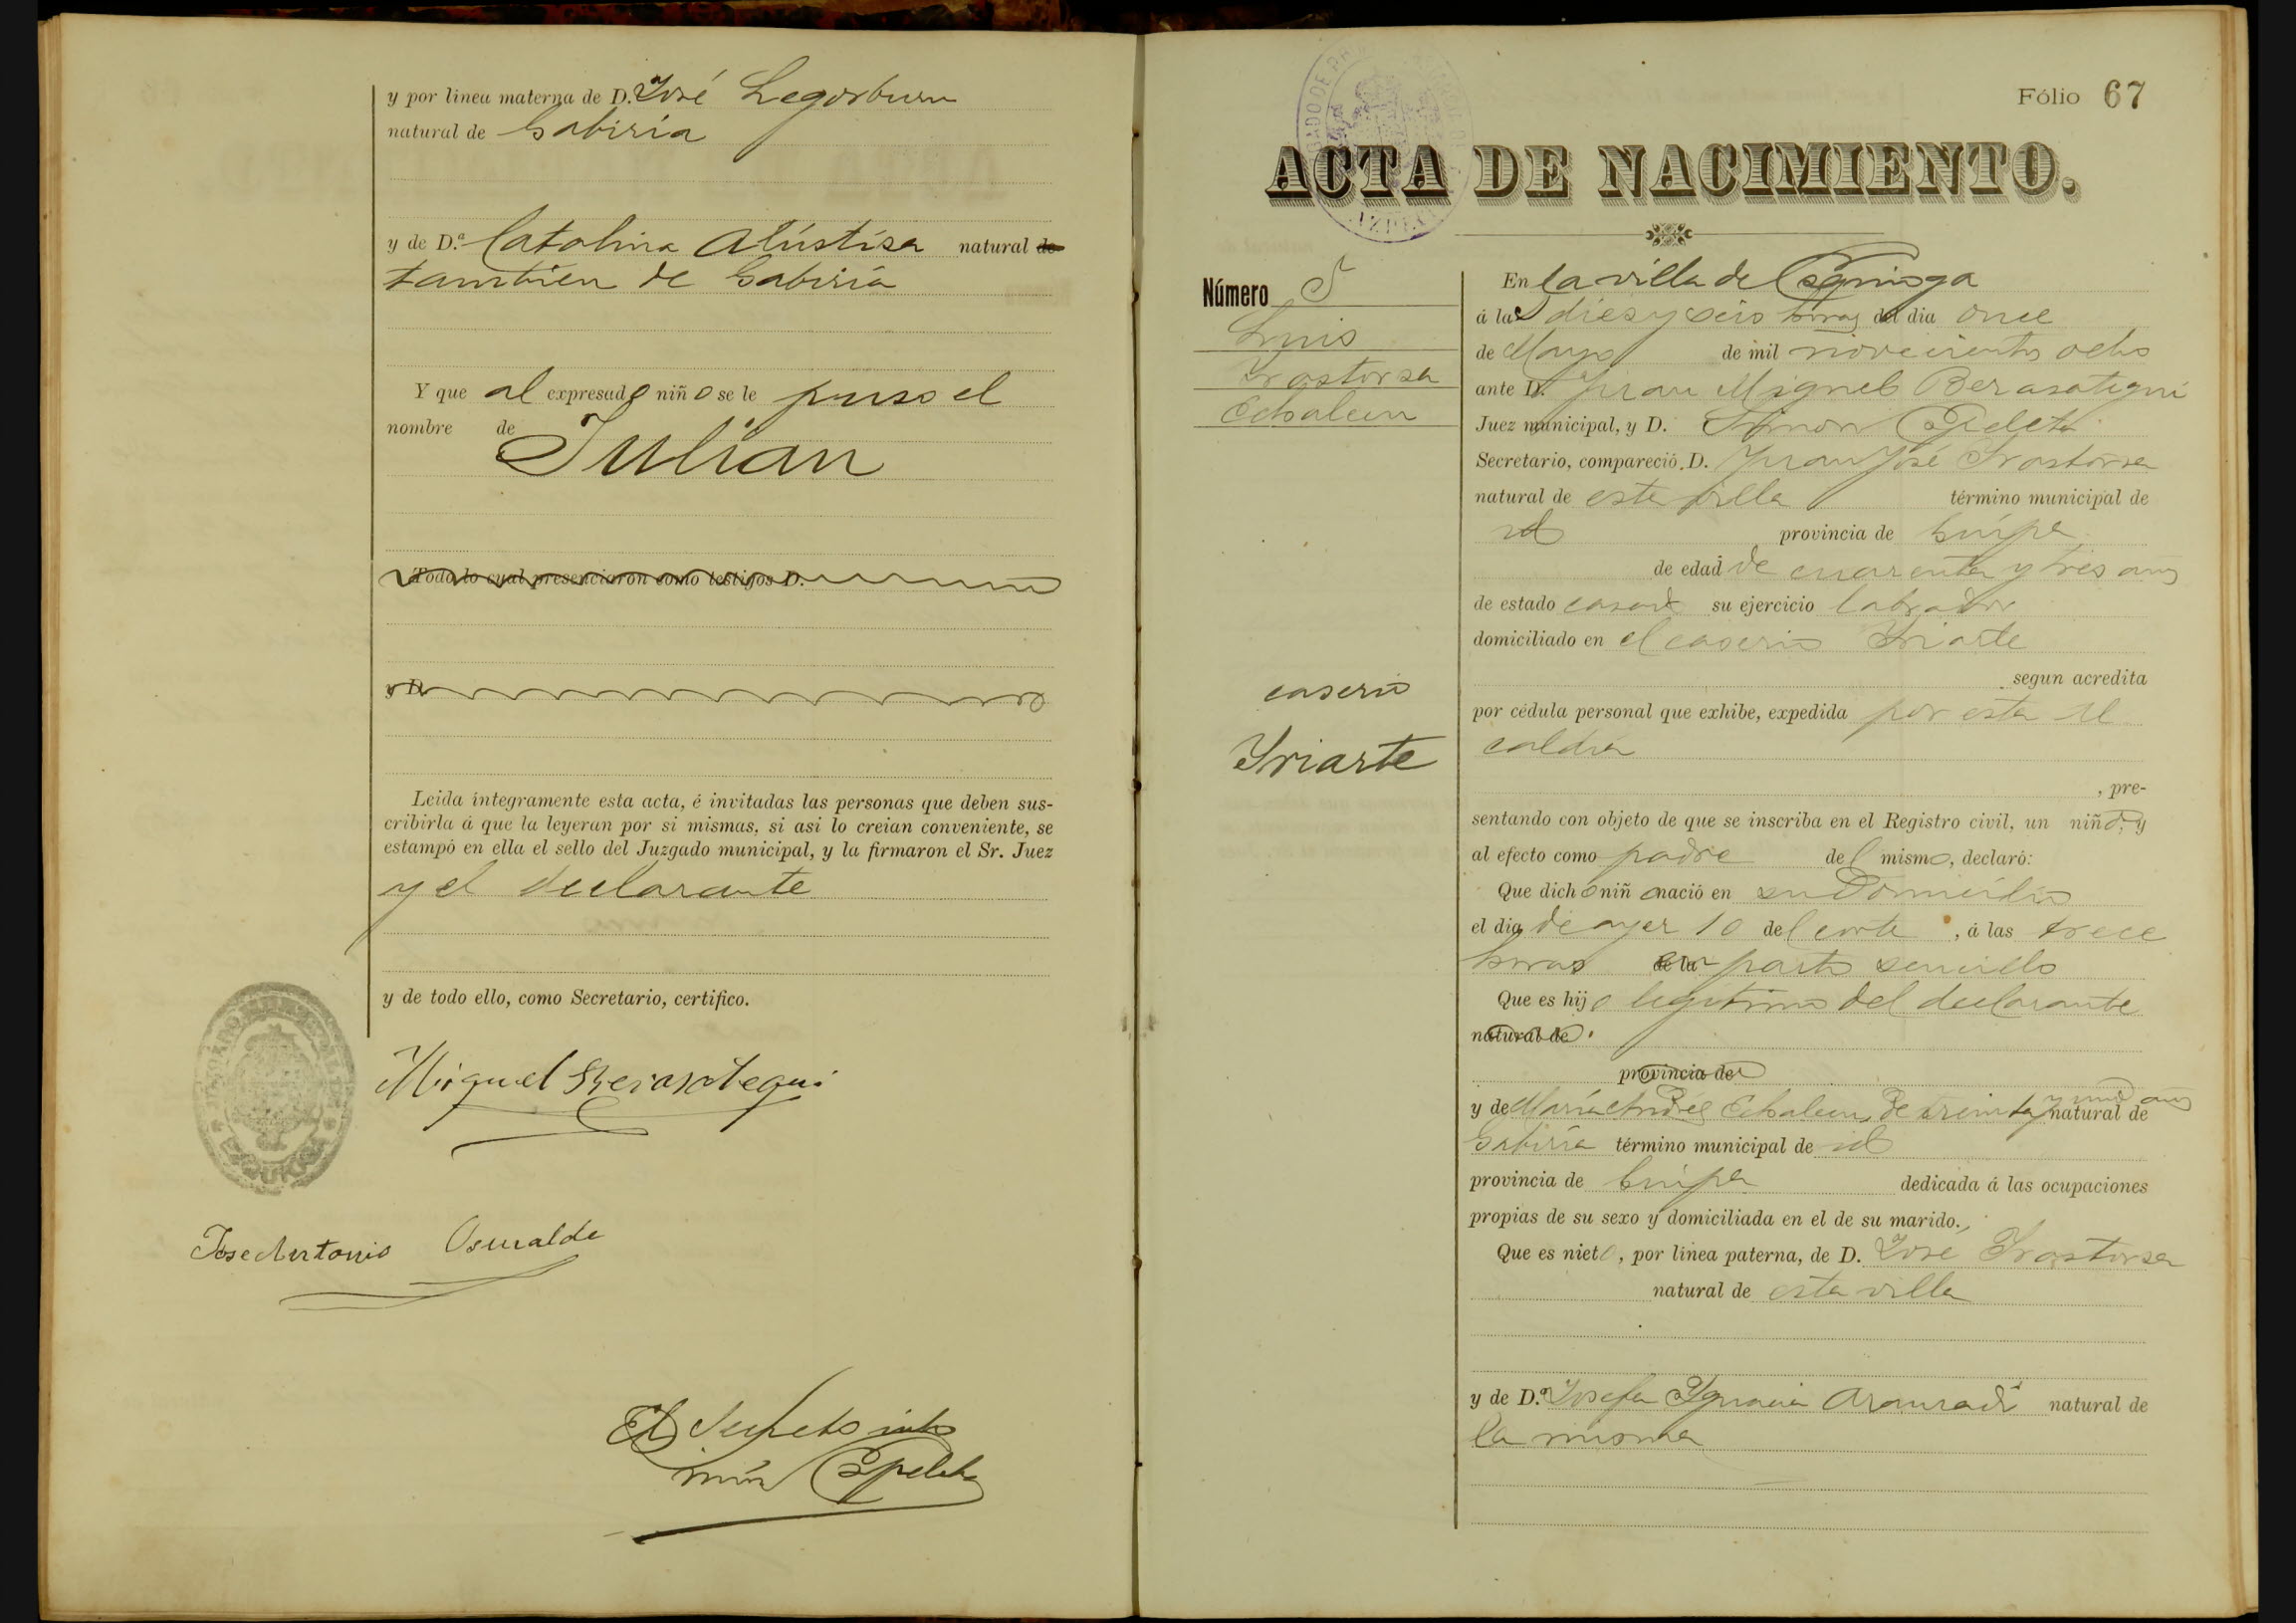 y por línea materna de D. José Legorburu
natural de Gabiria
y de D.ª Catalina Alústiza natural de
tambien de Gabiria
Y que al expresado niño se le puso el
nombre de
Julian
Todo lo cual presenciaron como testigos D.
y D.
Leida íntegramente esta acta, é invitadas las personas que deben sus-
cribirla á que la leyeran por si mismas, si asi lo creian conveniente, se
estampó en ella el sello del Juzgado municipal, y la firmaron el Sr. Juez
y el declarante
y de todo ello, como Secretario, certifico.
Miguel Berasategui
Jose Antonio Osinalde
El
Fólio 67
ACTA DE NACIMIENTO.
Número 5
Luis
Yrastorza
Echaleku
caserio
Yriarte
En la villa de Ezquioga
á las diez y seis horas del dia once
de Mayo de mil novecientos ocho
ante D. Juan Miguel Berasategui
Juez municipal, y D. Simon
Secretario, compareció, D. Juan José Yrastorza
natural de esta villa término municipal de
id provincia de Guipa
de edad de cuarenta y tres años
de estado casado su ejercicio labrador
domiciliado en el caserio Yriarte
segun acredita
por cédula personal que exhibe, expedida por esta Al
caldia
, pre-
sentando con objeto de que se inscriba en el Registro civil, un niño, y
al efecto como padre del mismo, declaró:
Que dicho niño nació en su domicilio
el dia de ayer 10 del corte , á las trece
horas de la parto sencillo
Que es hijo legitimo del declarante
natural de
provincia de
y de Maria Andrés Echaleku, de treinta y uno años natural de
Gabiria término municipal de id
provincia de Guipa dedicada á las ocupaciones
propias de su sexo y domiciliada en el de su marido.
Que es nieto, por línea paterna, de D. José Yrastorza
natural de esta villa
y de D.ª Josefa Ygnacia Aramradi natural de
la misma